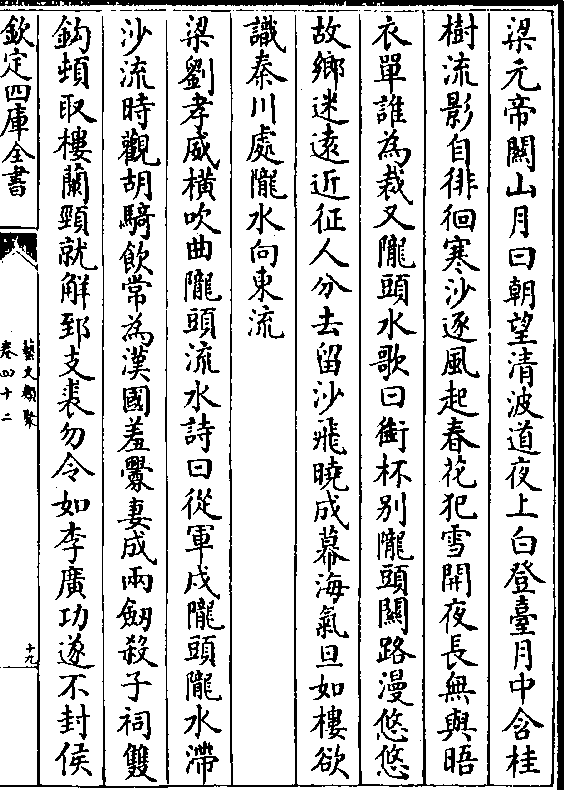 梁元帝關山月曰朝望清波道夜上白登臺月中含桂
樹流影自徘徊寒沙逐風起春花犯雪開夜長無與晤
衣單誰為裁又隴頭水歌曰銜杯别隴頭關路漫悠悠
故鄉迷遠近征人分去留沙飛曉成幕海氣旦如樓欲
識秦川處隴水向東流
梁劉孝威横吹曲隴頭流水詩曰從軍戍隴頭隴水滯
沙流時觀胡騎飲常為漢國羞釁妻成兩劒殺子祠雙
鈎頓取樓蘭頸就解郅支裘勿令如李廣功遂不封侯
欽定四庫全書
藝文類聚
卷四十二
十九